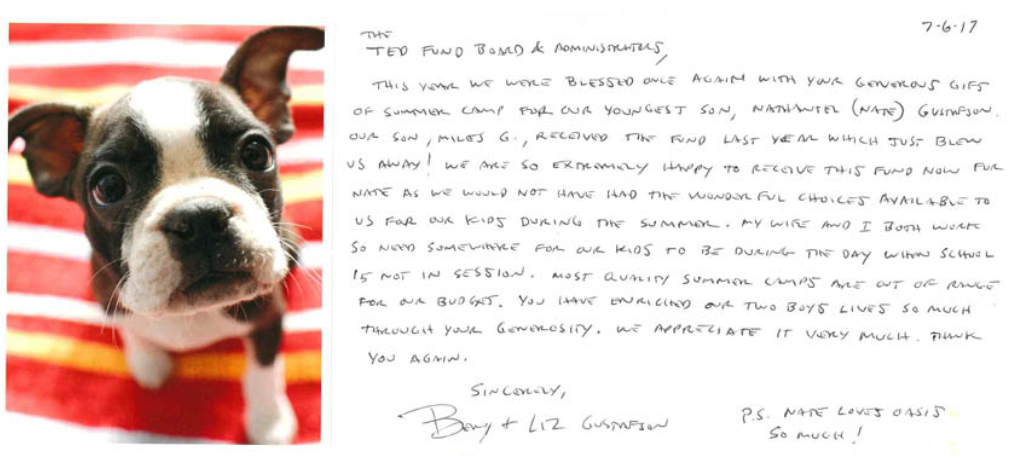 7-6-17
THE
TED FUND BOARD & ADMINISTRATORS,
THIS YEAR WE WERE BLESSED ONCE AGAIN WITH YOUR GENEROUS GIFT
OF SUMMER CAMP FOR OUR YOUNGEST SON, NATHANIEL (NATE) GUSTAFSON.
OUR SON, MILES G., RECEIVED THE FUND LAST YEAR WHICH JUST BLEW
US AWAY! WE ARE SO EXTREMELY HAPPY TO RECEIVE THIS FUND NOW FOR
NATE AS WE WOULD NOT HAVE HAD THE WONDERFUL CHOICES AVAILABLE TO
US FOR OUR KIDS DURING THE SUMMER. MY WIFE AND I BOTH WORK
SO NEED SOMEWHERE FOR OUR KIDS TO BE DURING THE DAY WHEN SCHOOL
IS NOT IN SESSION. MOST QUALITY SUMMER CAMPS ARE OUT OF RANGE
FOR OUR BUDGET. YOU HAVE ENRICHED OUR TWO BOYS LIVES SO MUCH
THROUGH YOUR GENEROSITY. WE APPRECIATE IT VERY MUCH. THANK
YOU AGAIN.
SINCERELY,
+ LIZ GUSTAFSON
P.S. NATE LOVES OASIS
SO MUCH!